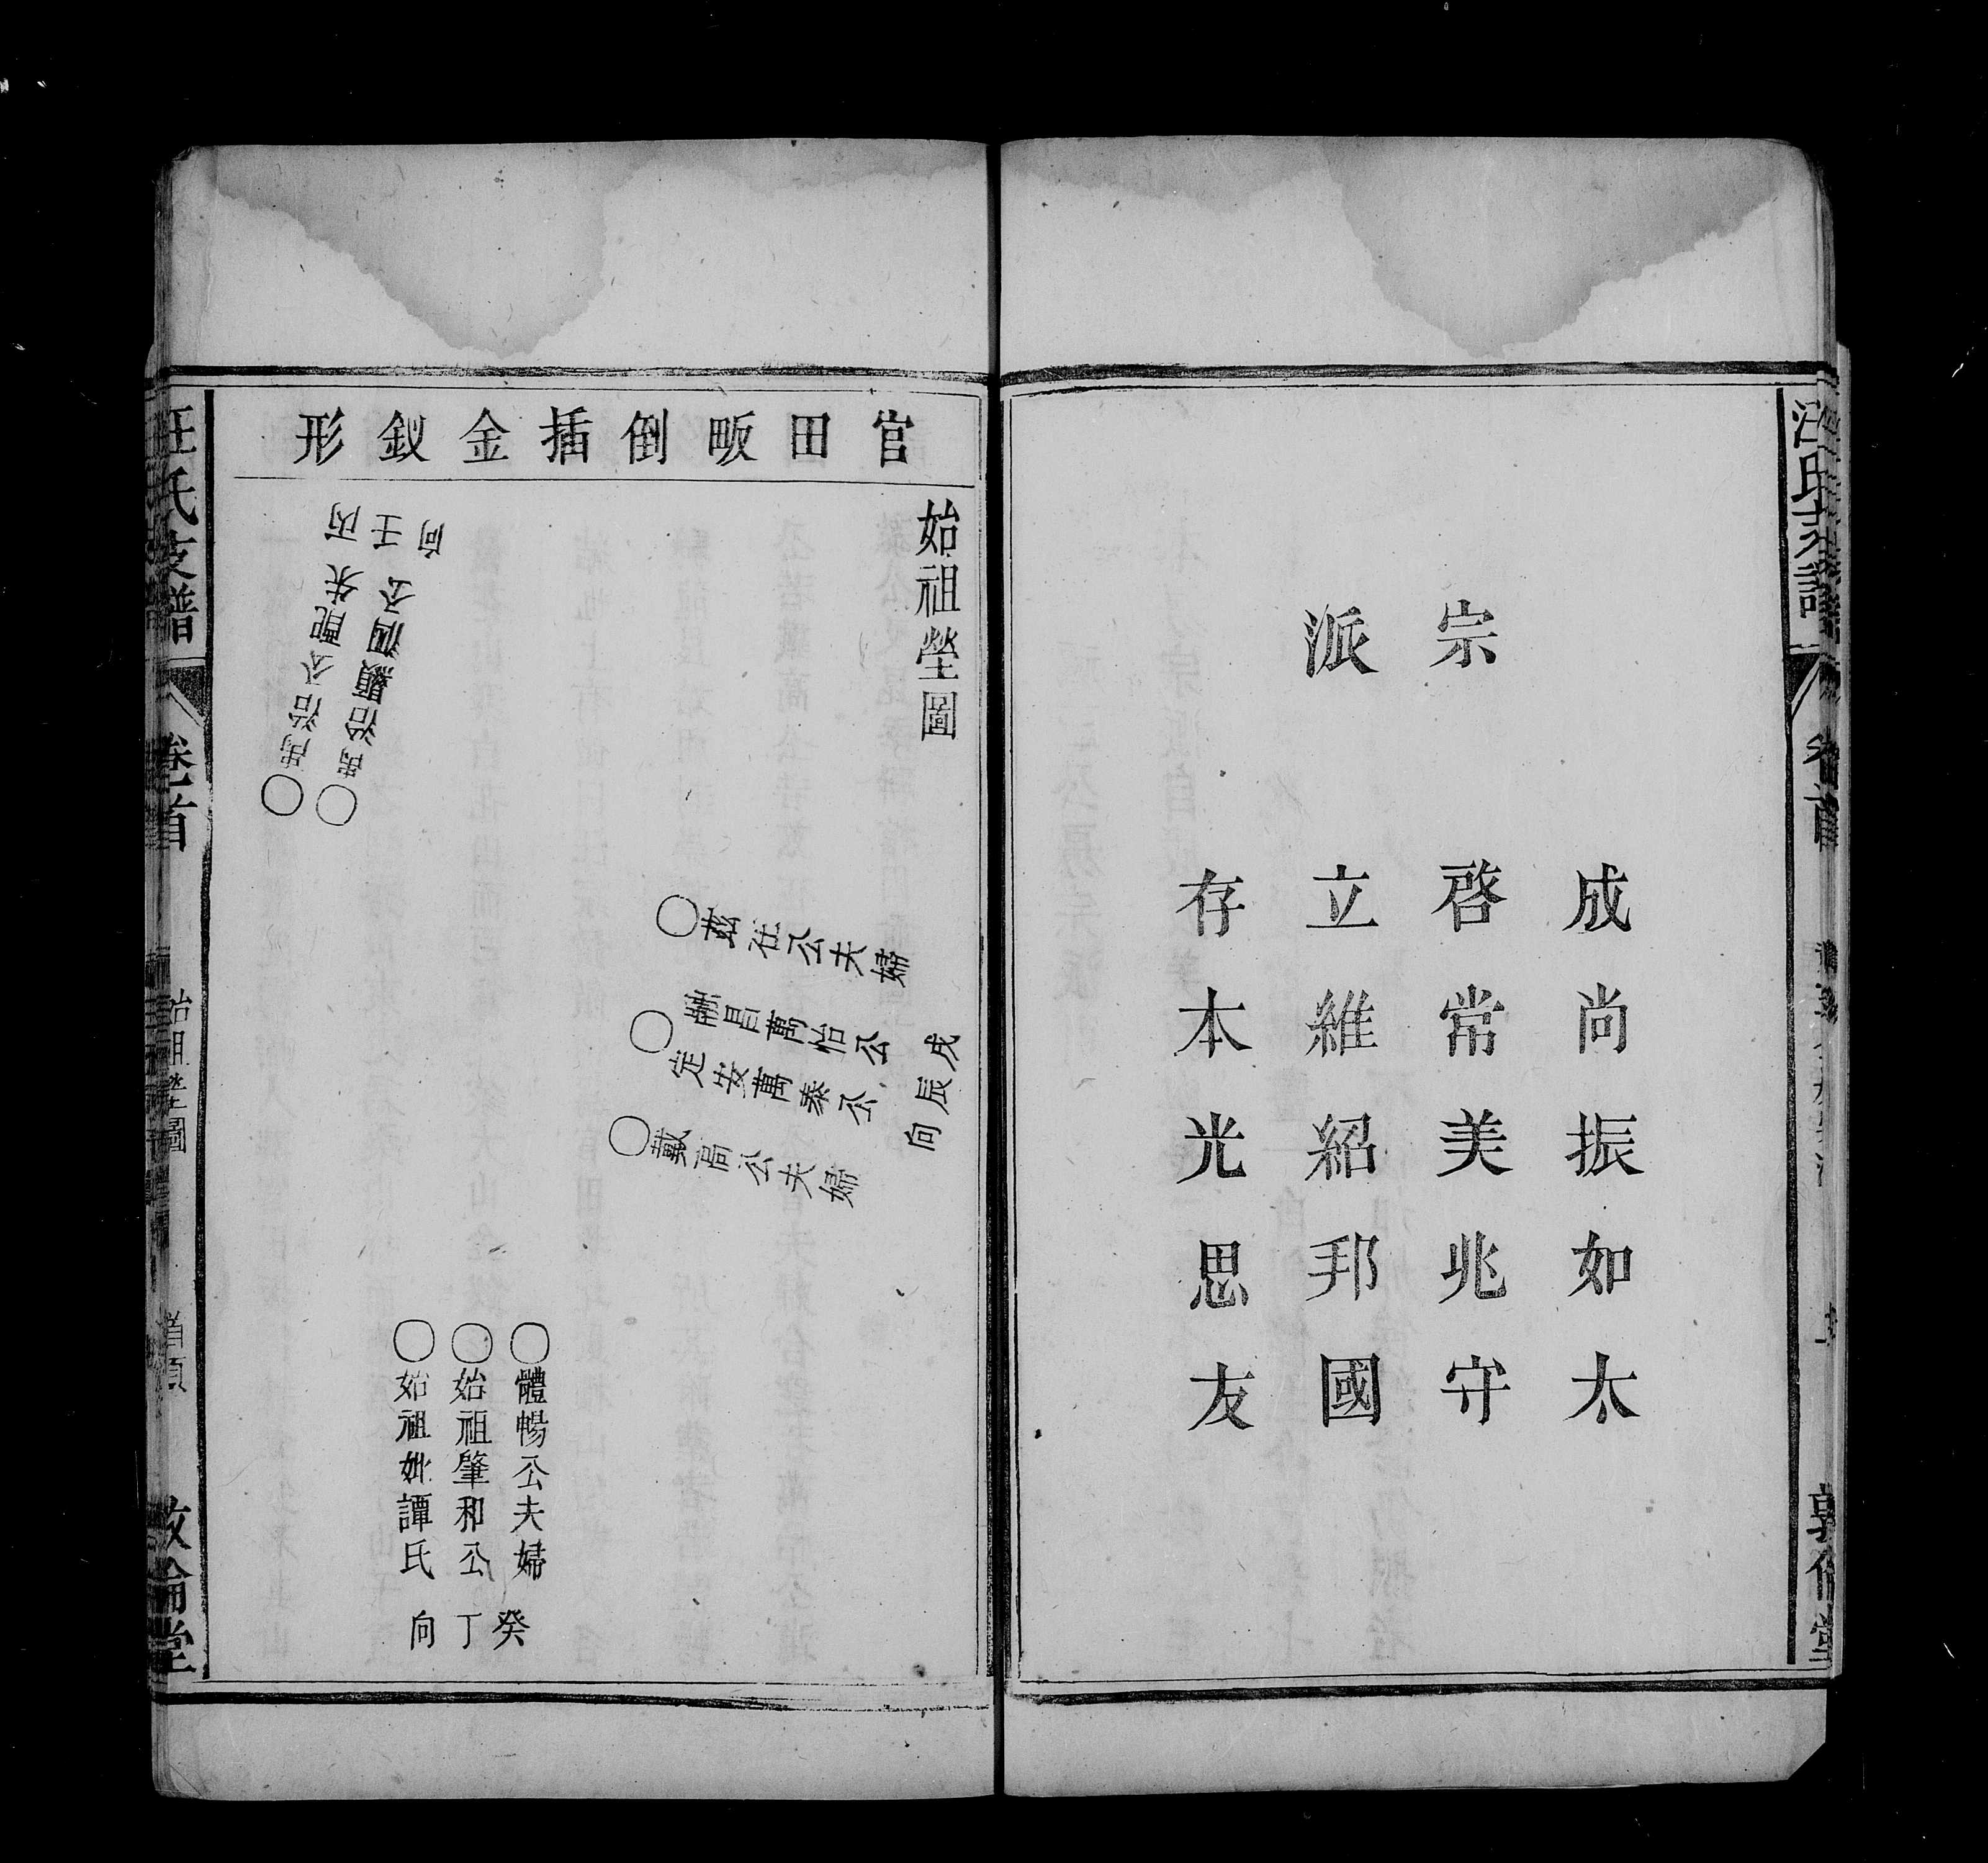 宗派
成尚振如太
啓常美兆守
立維紹邦國
存本光思友
敦倫堂
官田畈倒插金釵形
始祖塋圖
茲仕公夫婦
昌萬怡公
定安萬泰公
戴高公夫婦
戌辰向
體暢公夫婦
始祖肇和公
始祖妣譚氏
癸丁向
丙
壬
向
汪氏支譜
卷首
始祖塋圖
敦倫堂